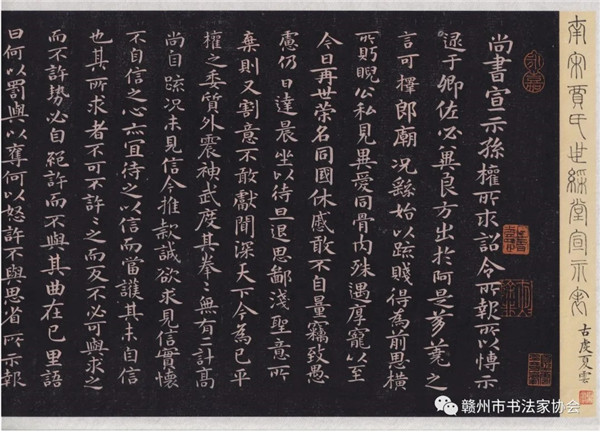 南宋賈氏世綵堂宣示表
古虔夏雲
尚書宣示孫權所求詔令所報所以博示
逮于卿佐必冀良方出於阿是芻蕘之
言可擇郎廟況繇始以疏賤得為前思橫
所眄睨公私見異愛同骨肉殊遇厚寵以至
今日再世榮名同國休慼敢不自量竊致愚
慮仍日達晨坐以待旦退思鄙淺聖意所
棄則又割意不敢獻聞深天下今為已平
權之委質外震神武度其拳々無有二計高
尚自疏況未見信今推款誠欲求見信實懷
不自信之心亦宜待之以信而當護其未自信
也其所求者不可不許々之而反不必可與求之
而不許勢必自絕許而不與其曲在己里語
曰何以罰與以奪何以怒許不與思省所示報
赣州市书法家协会